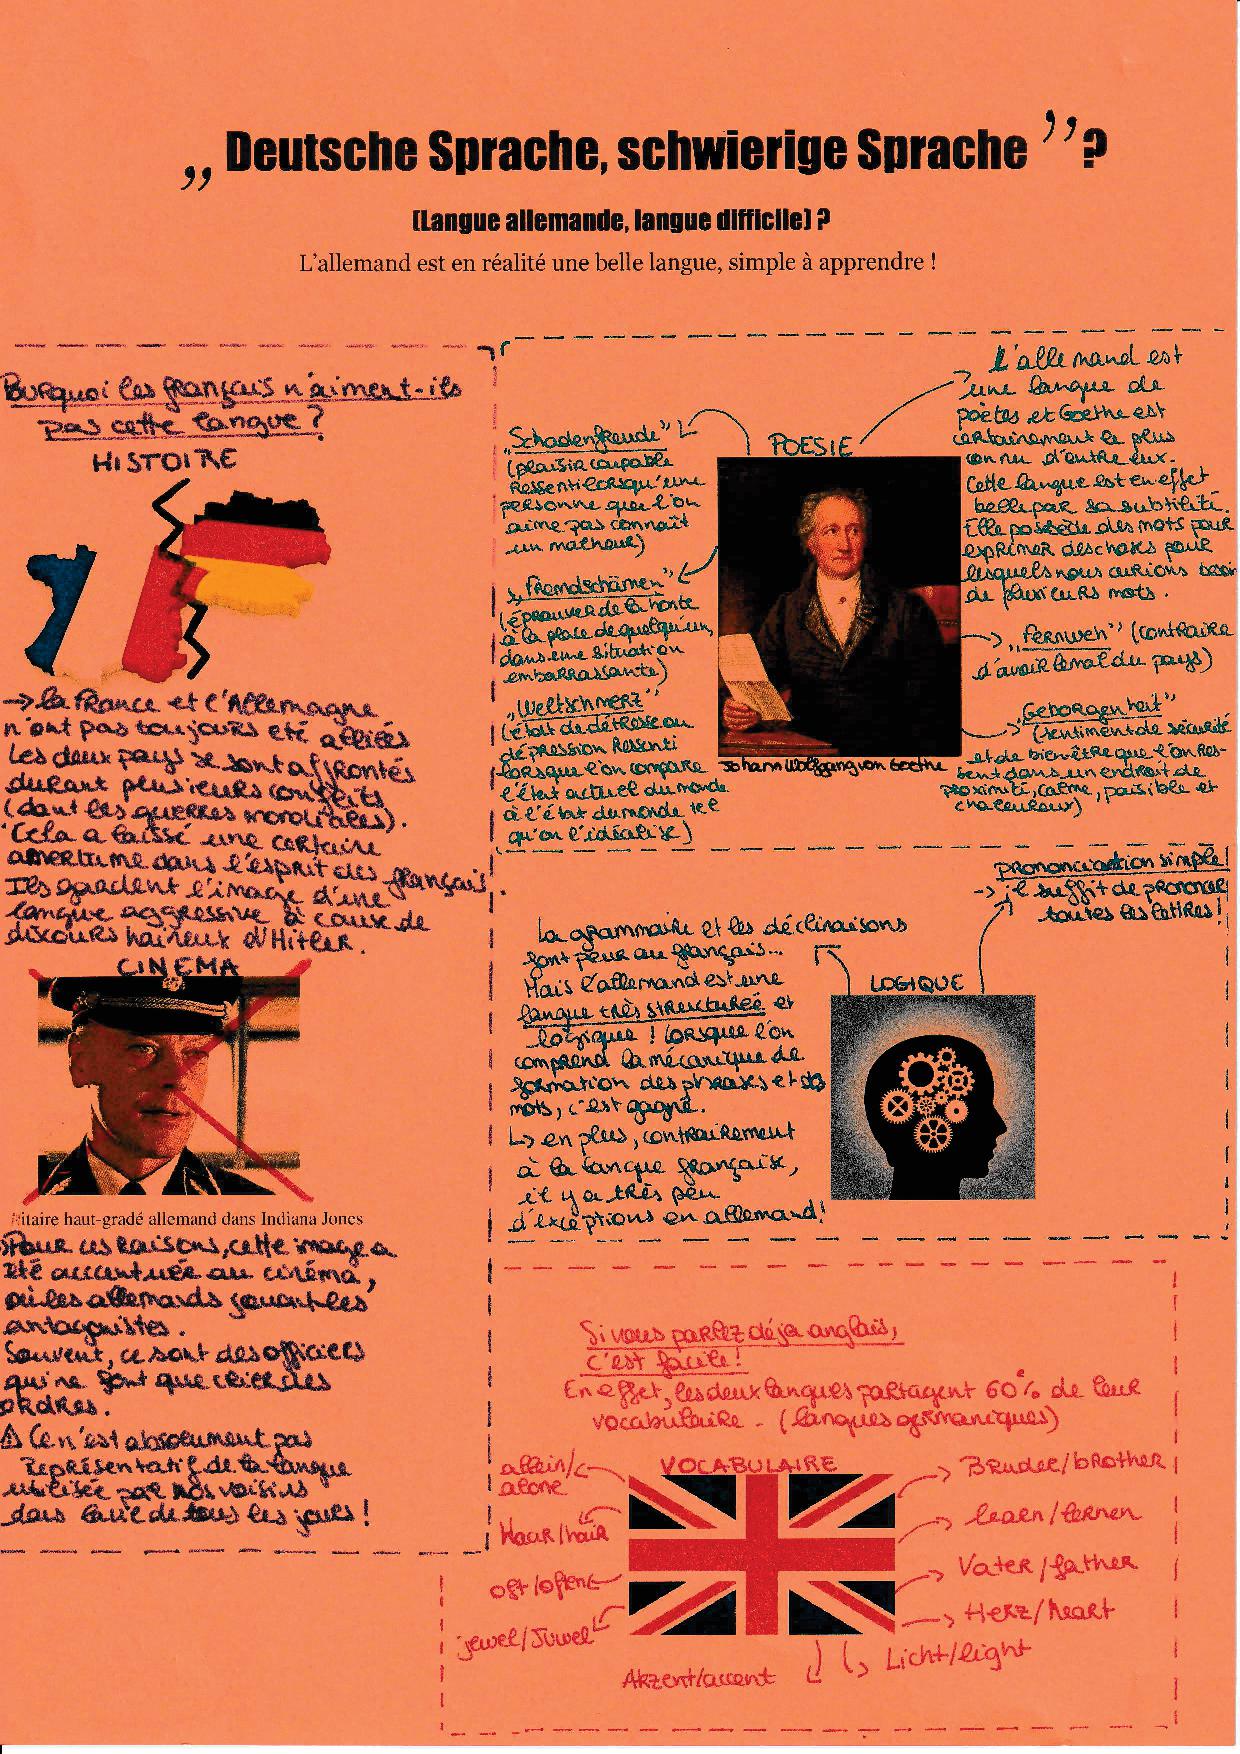 „ Deutsche Sprache, schwierige Sprache ” ?
(Langue allemande, langue difficile) ?
L'allemand est en réalité une belle langue, simple à apprendre !
Pourquoi les français n'aiment-ils
pas cette langue ?
HISTOIRE
→ la France et l'Allemagne
n'ont pas toujours été alliées
Les deux pays se sont affrontés
durant plusieurs conflits
(dont les guerres mondiales).
Cela a laissé une certaine
amertume dans l'esprit des français.
Ils gardent l'image d'une
langue aggressive à cause de
discours haineux d'Hitler.
CINEMA
itaire haut-gradé allemand dans Indiana Jones
Pour ces raisons, cette image a
été accentuée au cinéma,
où les allemands jouent les
antagonistes.
Souvent, ce sont des officiers
qui ne font que crier des
ordres.
⚠ Ce n'est absolument pas
représentatif de la langue
utilisée par nos voisins
dans la vie de tous les jours !
POESIE
„Schadenfreude”
(plaisir coupable
ressenti lorsqu'une
personne que l'on
aime pas connaît
un malheur)
„Fremdschämen”
(éprouver de la honte
à la place de quelqu'un,
dans une situation
embarrassante)
„Weltschmerz”
(état de détresse ou
dépression ressenti
lorsque l'on compare
l'état actuel du monde
à l'état du monde tel
qu'on l'idéalise)
Johann Wolfgang von Goethe
L'allemand est
une langue de
poètes et Goethe est
certainement le plus
connu d'entre eux.
Cette langue est en effet
belle par sa subtilité.
Elle possède des mots pour
exprimer des choses pour
lesquels nous aurions besoin
de plusieurs mots.
„Fernweh” (contraire
d'avoir le mal du pays)
„Geborgenheit”
(sentiment de sécurité
et de bien-être que l'on res-
sent dans un endroit de
proximité, calme, paisible et
chaleureux)
prononciation simple !
→ il suffit de prononcer
toutes les lettres !
LOGIQUE
La grammaire et les déclinaisons
font peur au français...
Mais l'allemand est une
langue très structurée et
logique ! Lorsque l'on
comprend la mécanique de
formation des phrases et des
mots, c'est gagné.
↳ en plus, contrairement
à la langue française,
il y a très peu
d'exceptions en allemand !
Si vous parlez déjà anglais,
c'est facile !
En effet, les deux langues partagent 60% de leur
vocabulaire - (langues germaniques)
VOCABULAIRE
allein/
alone
Haar/hair
oft/often
jewel/Juwel
Akzent/accent
Bruder/brother
learn/lernen
Vater/father
Herz/heart
Licht/light